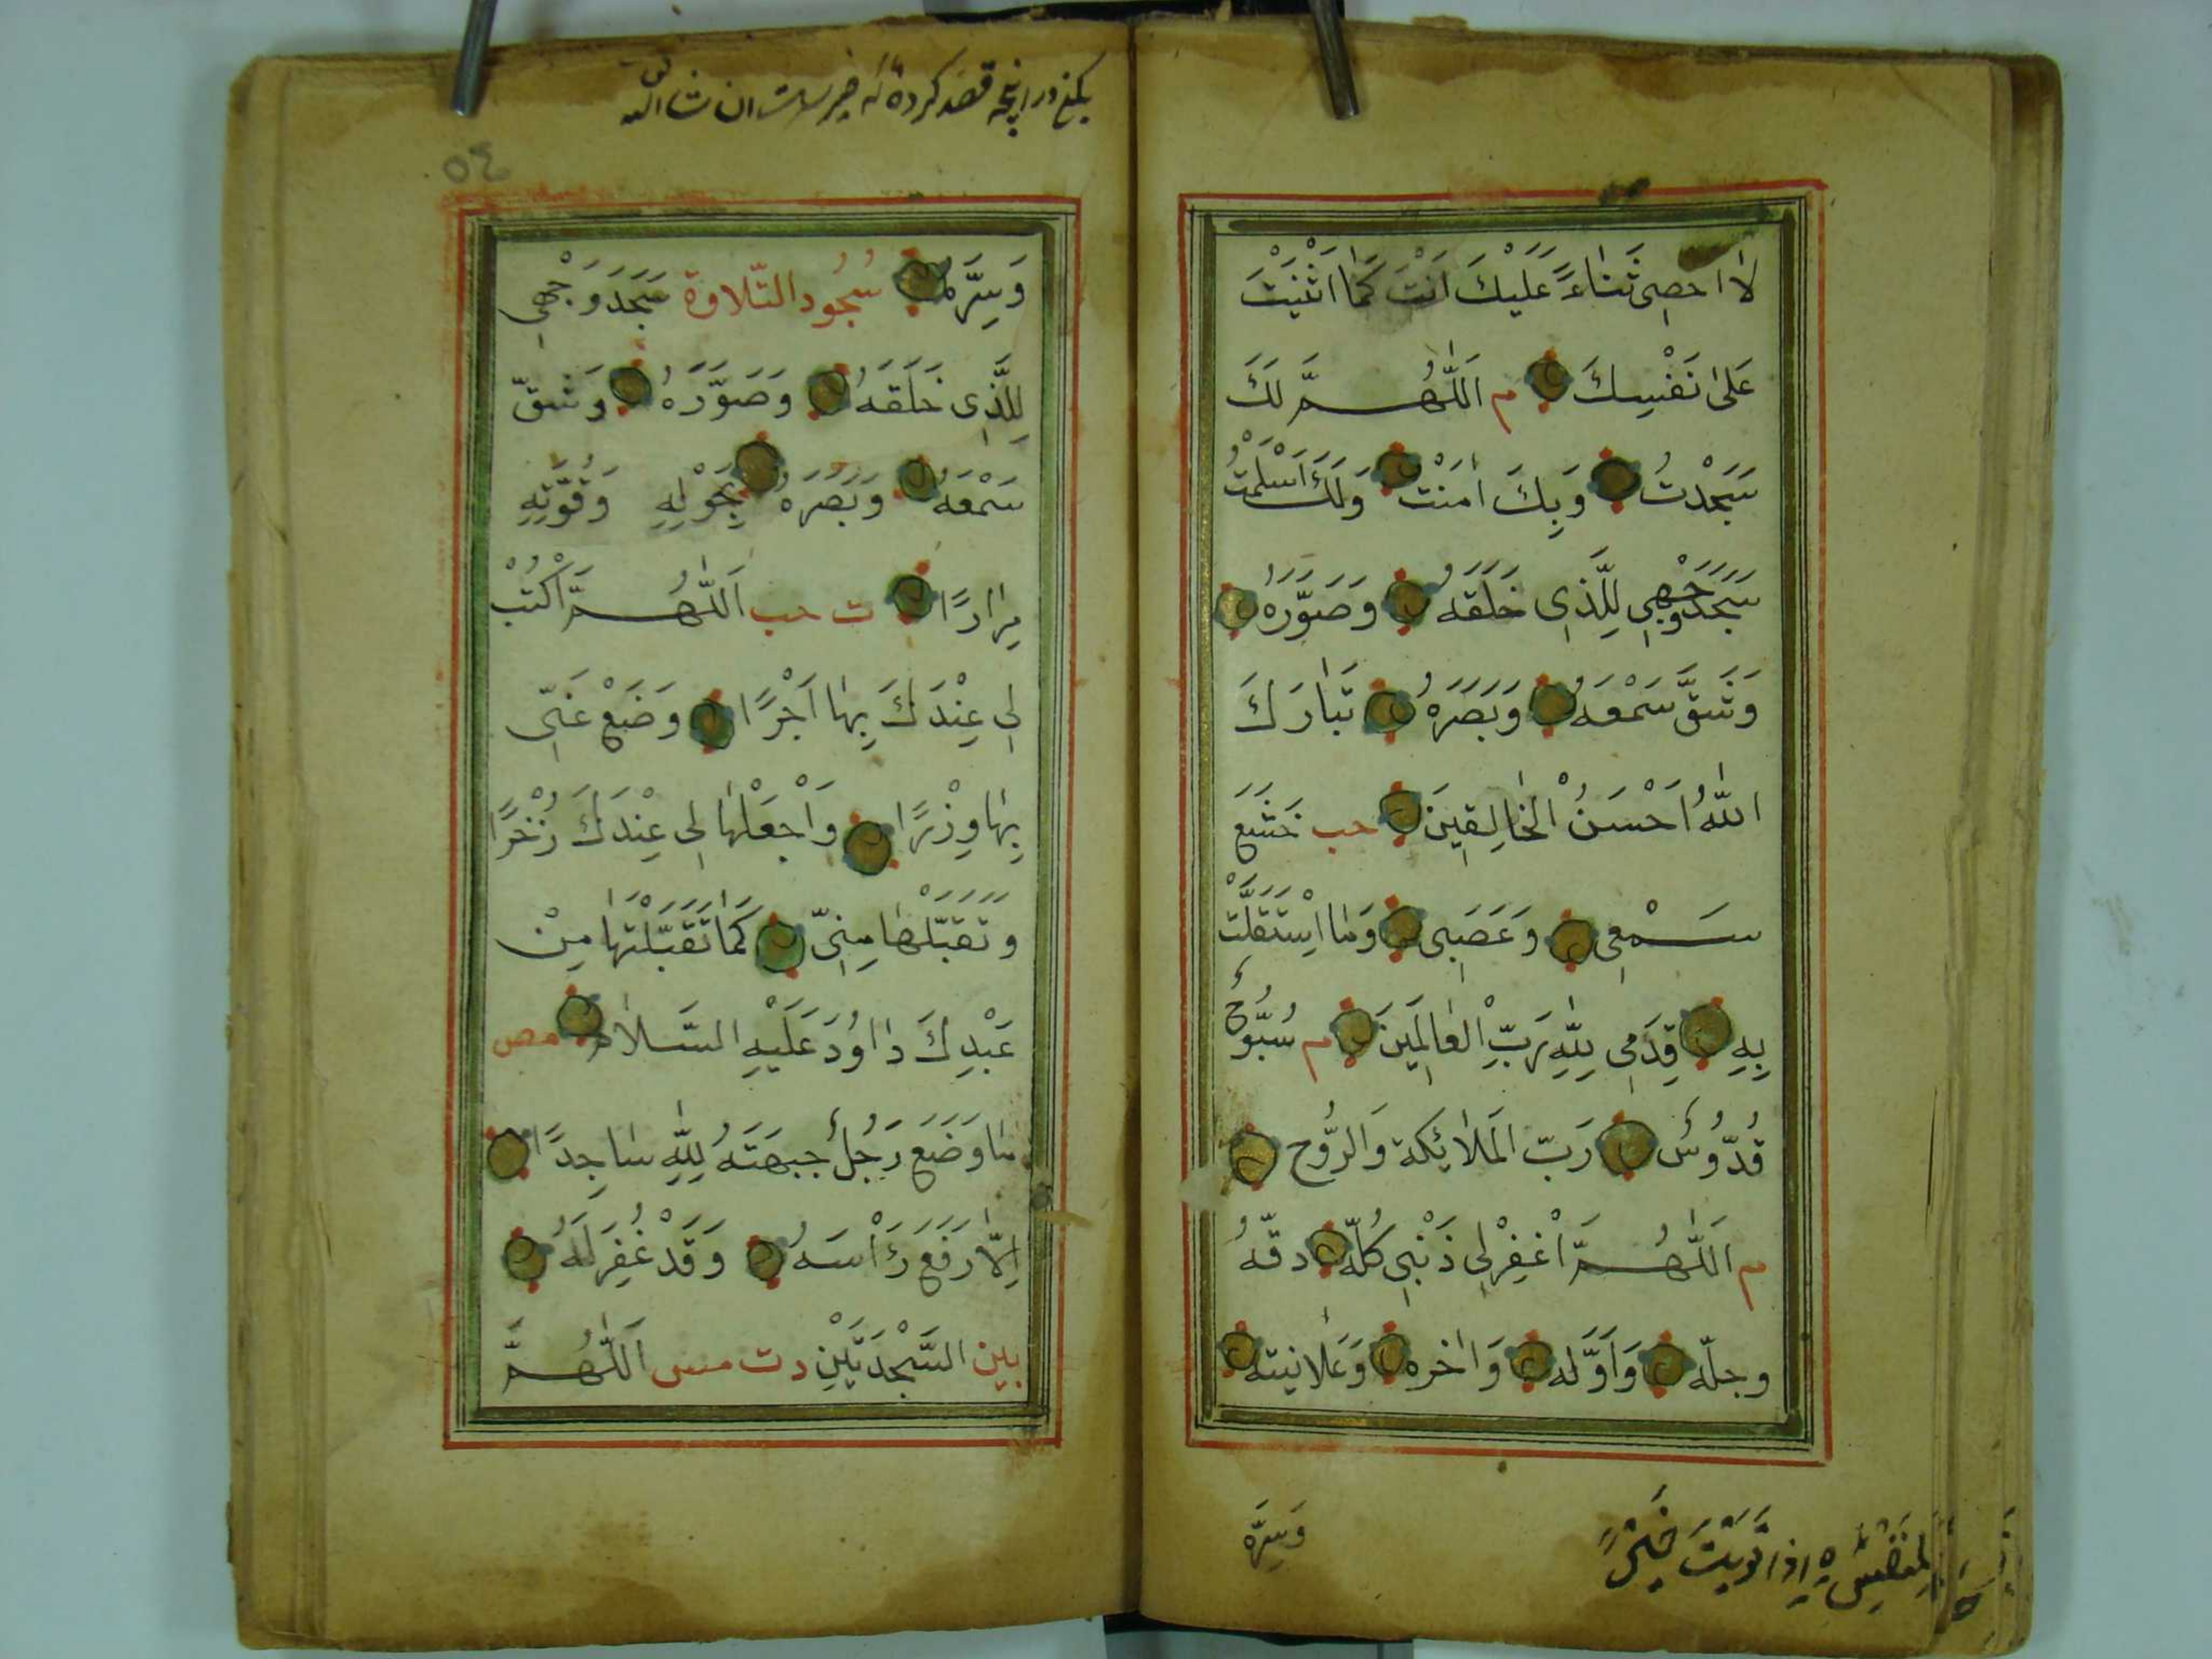 لَا اُحصِى ثَنَاءً عَلَيْكَ اَنْتَ كَمَا اَثْنَيْتَ
عَلىٰ نَفْسِكَ م اَللّٰهُمَّ لَكَ
سَجَدْتُ وَبِكَ اٰمَنْتُ وَلَكَ اَسْلَمْتُ
سَجَدَ وَجْهِي لِلَّذِى خَلَقَهُ وَصَوَّرَهُ
وَشَقَّ سَمْعَهُ وَبَصَرَهُ تَبَارَكَ
اللّٰهُ اَحْسَنُ الْخَالِقِينَ حب خَشَعَ
سَمْعِى وَعَصَبِى وَمَا اسْتَقَلَّتْ
بِهِ قَدَمِى لِلّٰهِ رَبِّ الْعَالَمِينَ م سُبُّوحٌ
قُدُّوسٌ رَبّ المَلَائِكة وَالرُّوح
م اَللّٰهُمَّ اغْفِرْلِى ذَنْبِى كُلّه دقّهُ
وجلّه وَاَوَّله وَاٰخره وَعَلانيته
وَسِرّه
اِذَا نَوَيْتَ خَيْرً
در اینچه قصد کرده که خیر است ان شا الله
٥٤
وَسِرَّهُ سُجُود التّلاوة سَجَدَ وَجْهِى
لِلَّذِى خَلَقَهُ وَصَوَّرَهُ وَشَقّ
سَمْعَهُ وَبَصَرَهُ بِحَوْلِهِ وَقُوَّتِهِ
مِرَارًا ت حب اَللّٰهُمَّ اكْتُبْ
لِى عِنْدَكَ بِهَا اَجْرًا وَضَعْ عَنِّى
بِهَا وِزْرًا وَاجْعَلْهَا لِى عِنْدَكَ ذُخْرًا
وتَقَبَّلْهَا مِنِّى كَمَا تَقَبَّلْتَهَا مِنْ
عَبْدِكَ دَاوُدَ عَلَيْهِ السَّلَامُ مص
مَا وَضَعَ رَجُلٌ جبهَتَهُ لِلّٰهِ سَاجِدًا
اِلَّا رَفَعَ رَأْسَهُ وَقَدْ غُفِرَ لَهُ
بين السَّجْدَتَيْنِ د ت مس اَللّٰهُمَّ